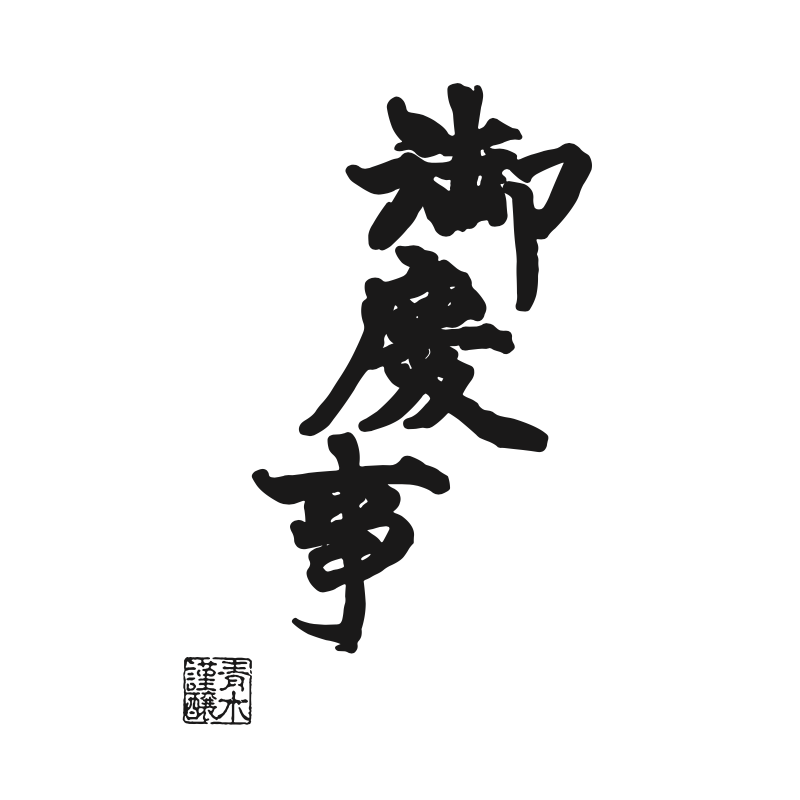 御慶事
青木
謹醸